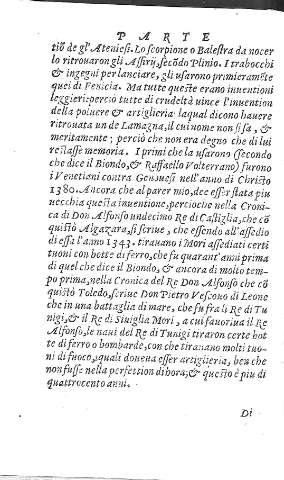 PARTE
tiō de gl'Ateniesi. Lo scorpione o Balestra da nocer
lo ritrouaron gli Assirij, secōdo Plinio. I trabocchi
& ingegni per lanciare, gli usarono primieramēte
quei di Fenicia. Ma tutte queste erano inuentioni
leggieri: perciò tutte di crudeltà uince l'inuention
della poluere & artiglieria: laqual dicono hauere
ritrouata un de Lamagna, il cui nome non si sa, &
meritamente; perciò che non era degno che di lui
restasse memoria. I primi che la usarono (secondo
che dice il Biondo, & Raffaello Volterrano) furono
i Venetiani contra Genouesi nell'anno di Christo
1380. Ancora che al parer mio, dee esser stata piu
uecchia questa inuentione, percioche nella Croni-
ca di Don Alfonso undecimo Re di Castiglia, che cō
quistò Algazara, si scriue, che essendo all'assedio
di essa l'anno 1343. tirauano i Mori assediati certi
tuoni con botte di ferro, che fu quarant'anni prima
di quel che dice il Biondo, & ancora di molto tem-
po prima, nella Cronica del Re Don Alfonso che cō
quistò Toledo, scriue Don Pietro Vescouo di Leone
che in una battaglia di mare, che fu fra il Re di Tu
nigi, & il Re di Siuiglia Mori, a cui fauoriua il Re
Alfonso, le naui del Re di Tunigi tiraron certe bot
te di ferro o bombarde, con che tirauano molti tuo
ni di fuoco, iquali doueua esser artiglieria, ben che
non fusse nella perfettion di hora; & questo è piu di
quattrocento anni.
Di